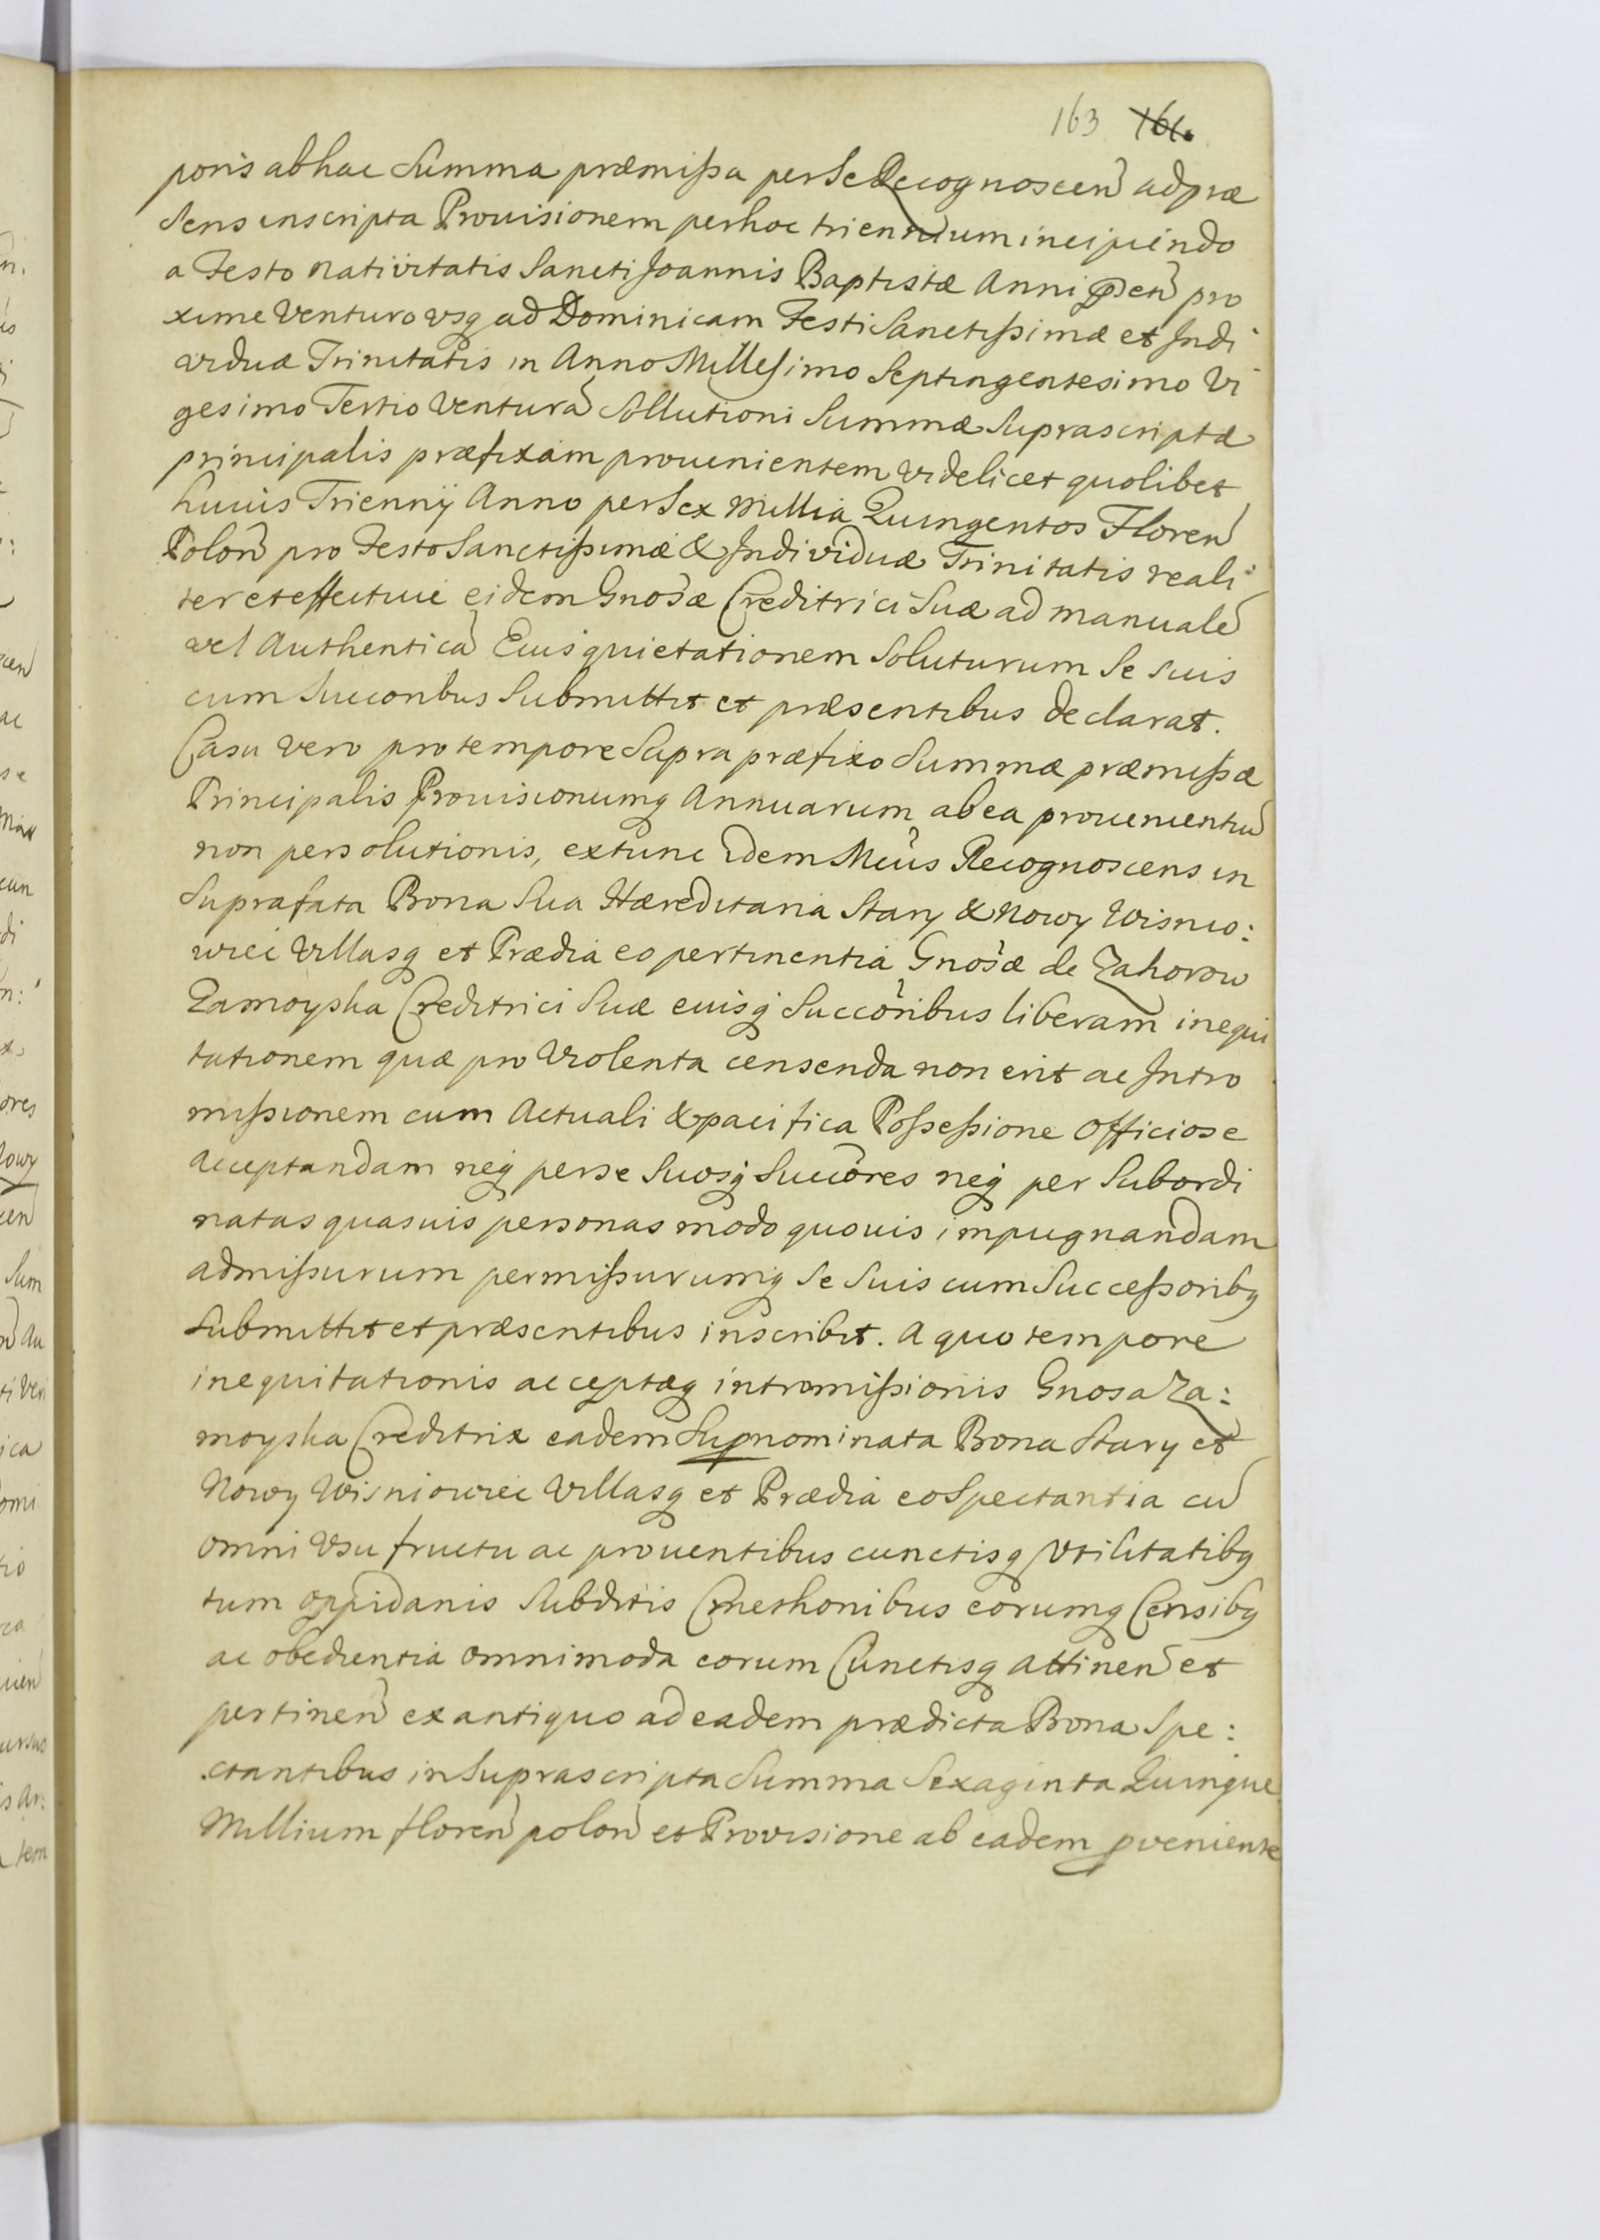 163 164.
poris ab hac Summa præmissa per Se Recognoscen̄ ad præ
Sens inscripta Prouisionem per hoc triennium incipiendo
a Festo nativitatis Sancti Joannis Baptistæ Anni p̄sen̄ pro
xime Venturo vsq̨ ad Dominicam Festi Sanctissimæ et Indi
viduæ Trinitatis in Anno Millesimo Septingentesimo Vi
gesimo Tertio Venturā Sollutioni Summæ Suprascriptæ
principalis præfixam prouenientem videlicet quolibet
huius Triennij Anno per Sex Millia Quingentos Floren̄
Polon̄ pro Festo Sanctissimæ & Individuæ Trinitatis reali
ter et effectiue eidem Gnosæ Creditrici Suæ ad manualē
vel Authenticā Eius quietationem Soluturum Se Suis
cum Succoribus Submittit et præsentibus declarat.
Casu vero pro tempore Supra præfixo Summæ præmissæ
Principalis Prouisionumq̨ Annuarum ab ea prouenientiū
non persolutionis, extunc idem Mcus Recognoscens in
Suprafata Bona Sua Hæreditaria Stary & Nowy Wisnio:
wiec Villasq̨ et Prædia eo pertinentia Gnosæ de Zahorow
Zamoyska Creditrici Suæ eiusq̨ Succoribus liberam inequi
tationem quæ pro Violenta censenda non erit ac Intro
missionem cum Actuali & pacifica Possessione Officiose
acceptandam neq̨ per se Suosq̨ Succores neq̨ per Subordi
natas quasuis personas modo quouis impugnandam
admissurum permissurumq̨ Se Suis cum Successoribq̨
Submittit et præsentibus inscribit. A quo tempore
inequitationis acceptæq̨ intromissionis Gnosa Za:
moyska Creditrix eadem Supnominata Bona Stary et
Nowy Wisniowiec Villasq̨ et Prædia eo Spectantia cū
omni Vsu fructu ac prouentibus cunctisq̨ Vtilitatibq̨
tum oppidanis Subditis Cmethonibus eorumq̨ Censibq̨
ac obedientia omnimoda eorum Cunctisq̨ attinen̄ et
pertinen̄ ex antiquo ad eadem prædicta Bona Spe:
ctantibus in Suprascripta Summa Sexaginta Quinque
Millium floren̄ polon̄ et Provisione ab eadem pveniente